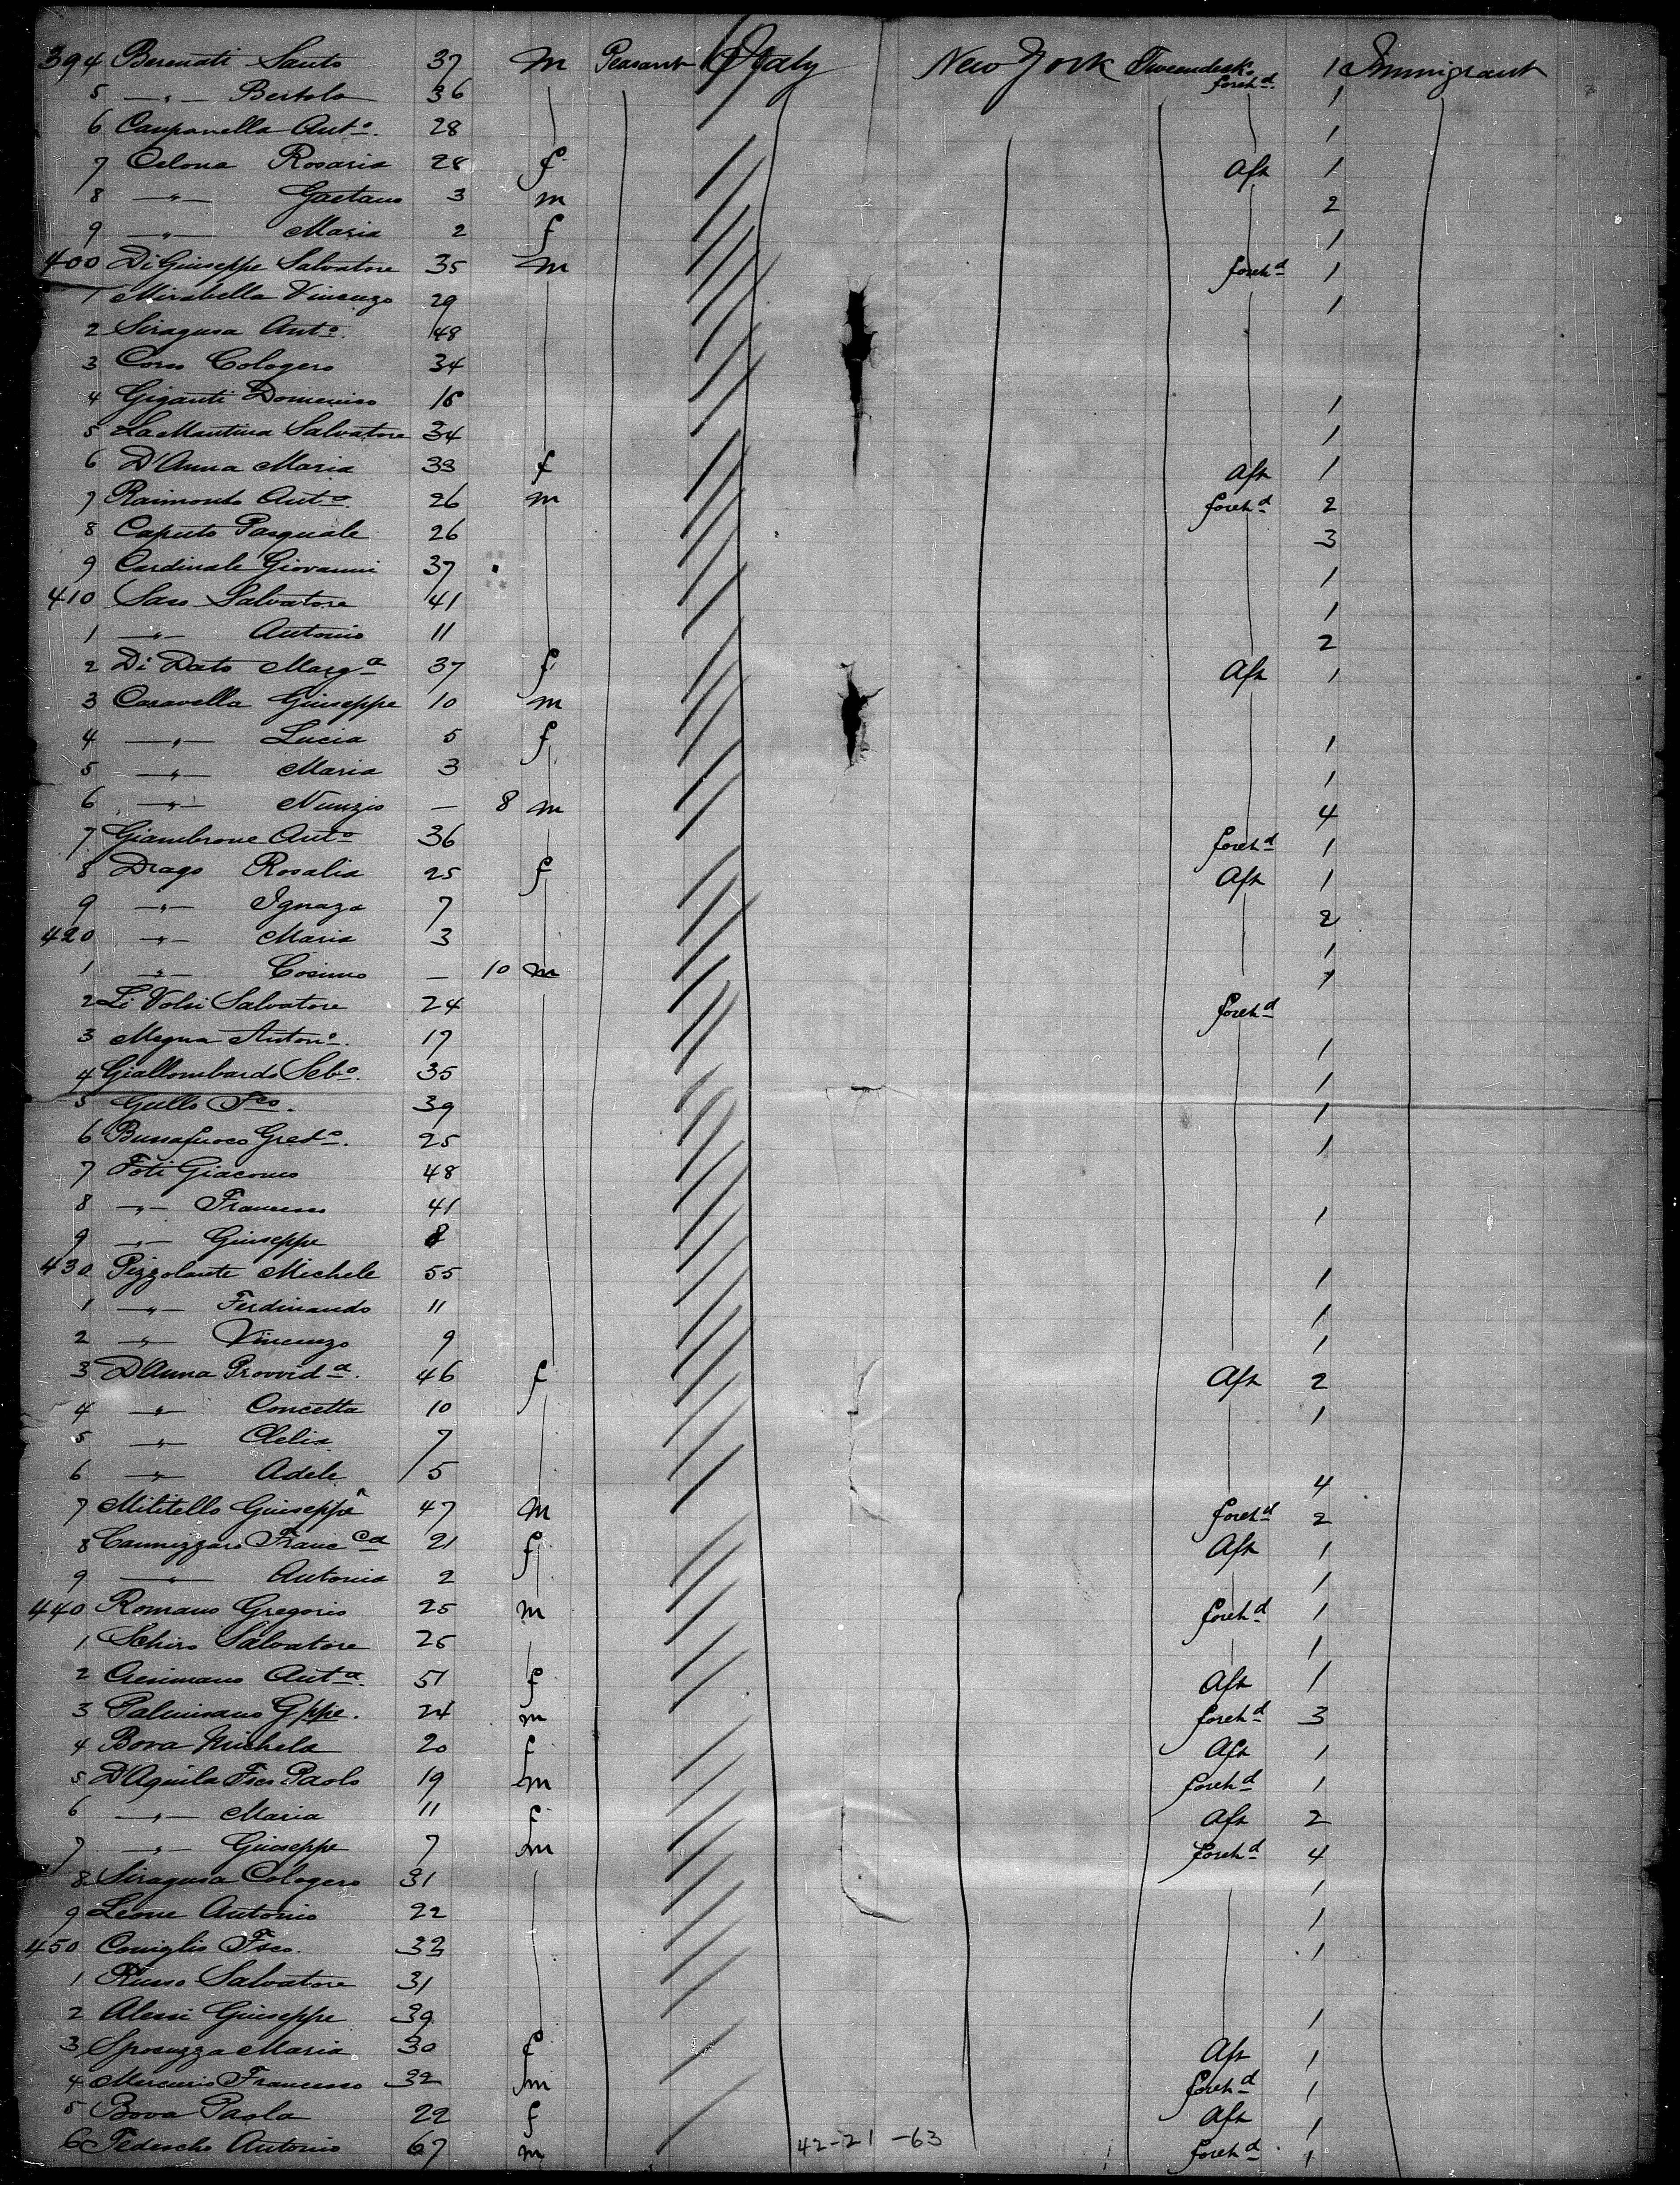 394 Berenati Santo 37 m Peasant Italy New York Tweendecks foreh<sup>d</sup>. 1 Immigrant
5 —"— Bertolo 36 1
6 Campanella Ant<sup>o</sup>. 28 1
7 Celona Rosaria 28 f Aft 1
8 —"— Gaetano 3 m 2
9 —"— Maria 2 f 1
400 Di Giuseppe Salvatore 35 m foreh<sup>d</sup> 1
1 Mirabella Vincenzo 29 1
2 Siragusa Ant<sup>o</sup>. 48
3 Corso Cologero 34
4 Giganti Domenico 16 1
5 La Mantina Salvatore 34 1
6 D'Anna Maria 33 f Aft 1
7 Raimondo Ant<sup>o</sup>. 26 m foreh<sup>d</sup> 2
8 Caputo Pasquale 26 3
9 Cardinale Giovanni 37 1
410 Saro Salvatore 41 1
1 —"— Antonio 11 2
2 Di Dato Marg<sup>a</sup> 37 f Aft 1
3 Caravella Giuseppe 10 m
4 —"— Lucia 5 f 1
5 —"— Maria 3 1
6 —"— Nunzio — 8 m 4
7 Giambrone Ant<sup>o</sup> 36 foreh<sup>d</sup> 1
8 Drago Rosalia 25 f Aft 1
9 —"— Ignaza 7 2
420 —"— Maria 3 1
1 —"— Cosimo — 10 m 1
2 Li Volsi Salvatore 24 foreh<sup>d</sup>
3 Megna Anton<sup>o</sup>. 17 1
4 Giallombardo Seb<sup>o</sup>. 35 1
5 Gullo Fco. 39 1
6 Bussafuoco Gred<sup>o</sup>. 25 1
7 Foti Giacomo 48
8 —"— Francesco 41 1
9 —"— Giuseppe 8
430 Pizzolante Michele 55 1
1 —"— Ferdinando 11 1
2 —"— Vincenzo 9 1
3 D'Anna Provvid<sup>a</sup>. 46 f Aft 2
4 —"— Concetta 10 1
5 —"— Clelia 7
6 —"— Adele 5 4
7 Militello Giuseppe 47 m foreh<sup>d</sup> 2
8 Cannizzaro Franc<sup>ca</sup> 21 f Aft 1
9 —"— Antonia 2 1
440 Romano Gregorio 25 m foreh<sup>d</sup> 1
1 Schiro Salvatore 25 1
2 Ant<sup>a</sup>. 51 f Aft 1
3 Palmisano Gppe. 24 m foreh<sup>d</sup> 3
4 Bova Michela 20 f Aft 1
5 D'Aquila Fsco Paolo 19 m foreh<sup>d</sup> 1
6 —"— Maria 11 f Aft 2
7 —"— Giuseppe 7 m foreh<sup>d</sup> 4
8 Siragusa Cologero 31 1
9 Leone Antonio 22 1
450 Coniglio Fsco. 33 1
1 Russo Salvatore 31
2 Alessi Giuseppe 39 1
3 Sposuzza Maria 30 f Aft 1
4 Mercurio Francesco 32 m foreh<sup>d</sup> 1
5 Bova Paola 22 f Aft 1
6 Tedesche Antonio 67 m 42-21-63 foreh<sup>d</sup> 1